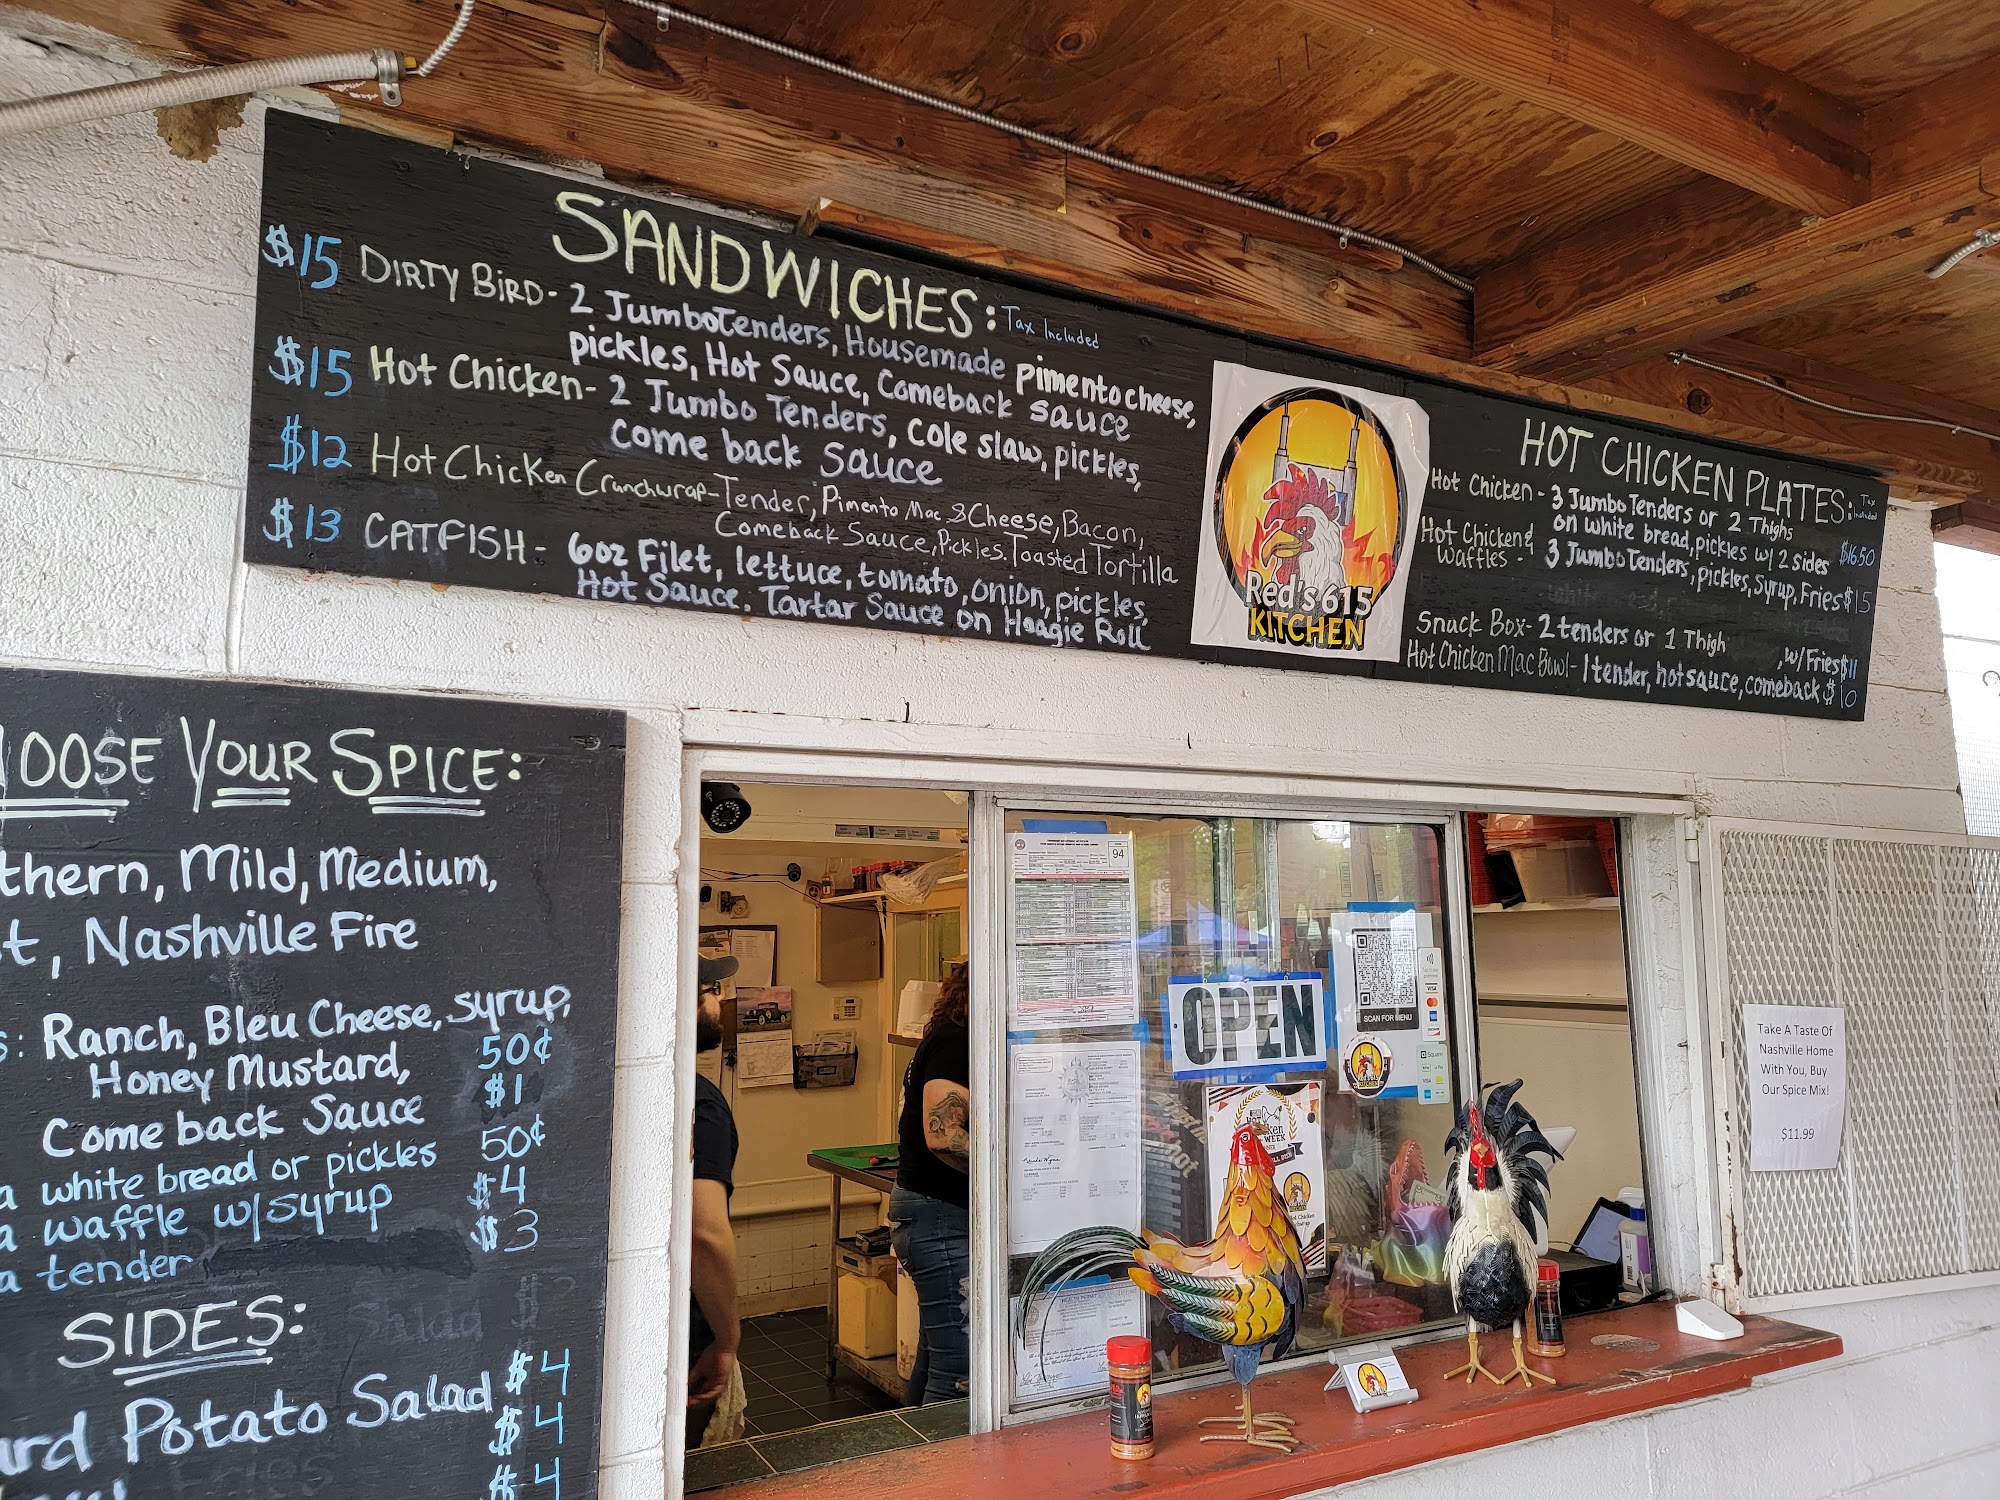 SANDWICHES: Tax Included
$15 DIRTY BIRD- 2 Jumbo Tenders, Housemade pimento cheese,
pickles, Hot Sauce, Comeback sauce
$15 Hot Chicken- 2 Jumbo Tenders, Cole slaw, pickles,
come back sauce
$12 Hot Chicken Crunchwrap-Tender, Pimento Mac & Cheese, Bacon,
Comeback Sauce, Pickles. Toasted Tortilla
$13 CATFISH- 6oz Filet, lettuce, tomato, onion, pickles,
Hot Sauce. Tartar Sauce on Hoagie Roll
Red's 615
KITCHEN
HOT CHICKEN PLATES: Tax
Included
Hot Chicken- 3 Jumbo Tenders or 2 Thighs
on white bread, pickles w/ 2 sides $16.50
Hot Chicken &
Waffles- 3 Jumbo Tenders, pickles, Syrup, Fries $15
Snack Box- 2 tenders or 1 Thigh , w/ Fries $11
Hot Chicken Mac Bowl- 1 tender, hot sauce, comeback $10
OOSE YOUR SPICE:
thern, Mild, Medium,
t, Nashville Fire
s: Ranch, Bleu Cheese, syrup,
Honey Mustard, 50¢
Come back Sauce $1
a white bread or pickles 50¢
a waffle w/syrup $4
a tender $3
SIDES:
ard Potato Salad $4
$4
$4
94
OPEN
SCAN FOR MENU
VISA
Square
Take A Taste Of
Nashville Home
With You, Buy
Our Spice Mix!
$11.99